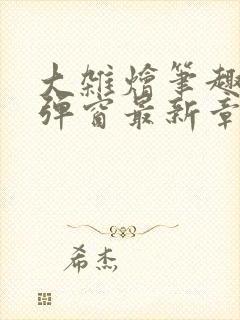 大雑燴筆趣
弾窗最新章
希杰